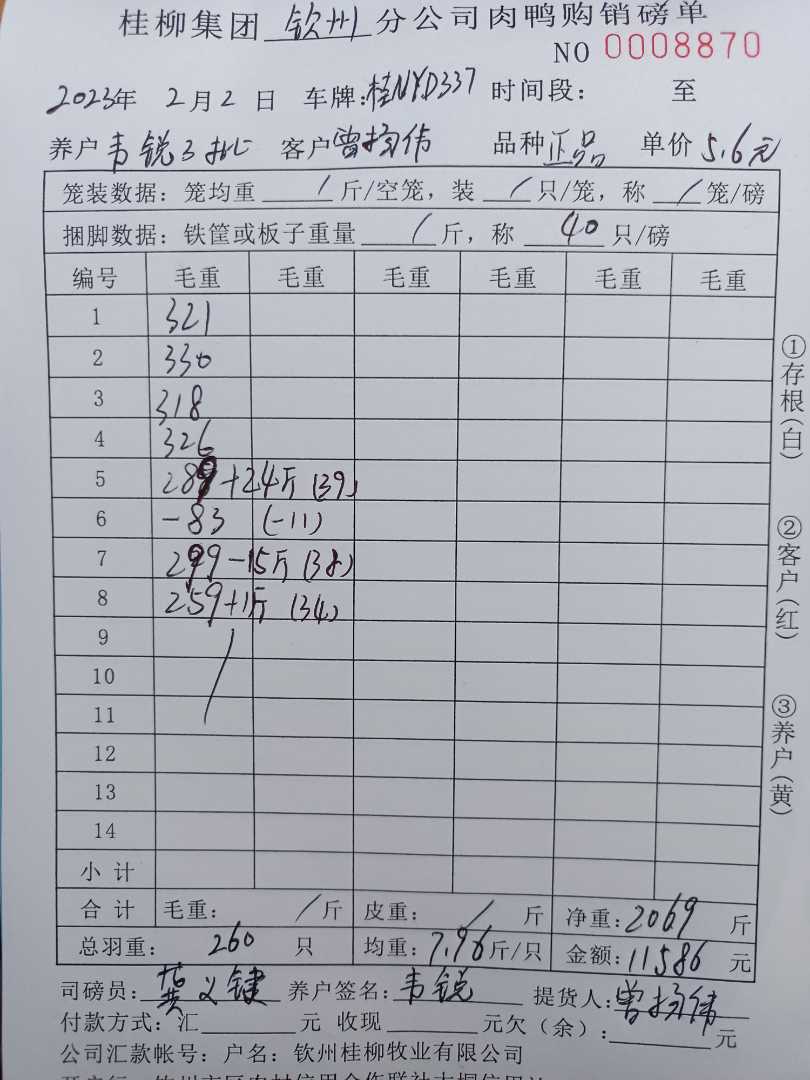 桂柳集团 钦州 分公司肉鸭购销磅单
NO 0008870
2023年 2月2日 车牌:桂NYD337 时间段: 至
养户 韦锐3批 客户 曾扬伟 品种 正品 单价 5.6元
笼装数据: 笼均重 / 斤/空笼, 装 / 只/笼, 称 / 笼/磅
捆脚数据: 铁筐或板子重量 / 斤, 称 40 只/磅
编号 毛重 毛重 毛重 毛重 毛重 毛重
1 321
2 330
3 318
4 326
5 289+24斤(39)
6 -83 (-11)
7 299-15斤(38)
8 259+1斤(34)
9
10
11
12
13
14
小计
合计 毛重: / 斤 皮重: / 斤 净重: 2069 斤
总羽重: 260 只 均重: 7.96斤/只 金额: 11586 元
司磅员: 龚义键 养户签名: 韦锐 提货人: 曾扬伟
付款方式: 汇 元 收现 元欠(余): 元
公司汇款帐号: 户名: 钦州桂柳牧业有限公司
①存根(白)
②客户(红)
③养户(黄)